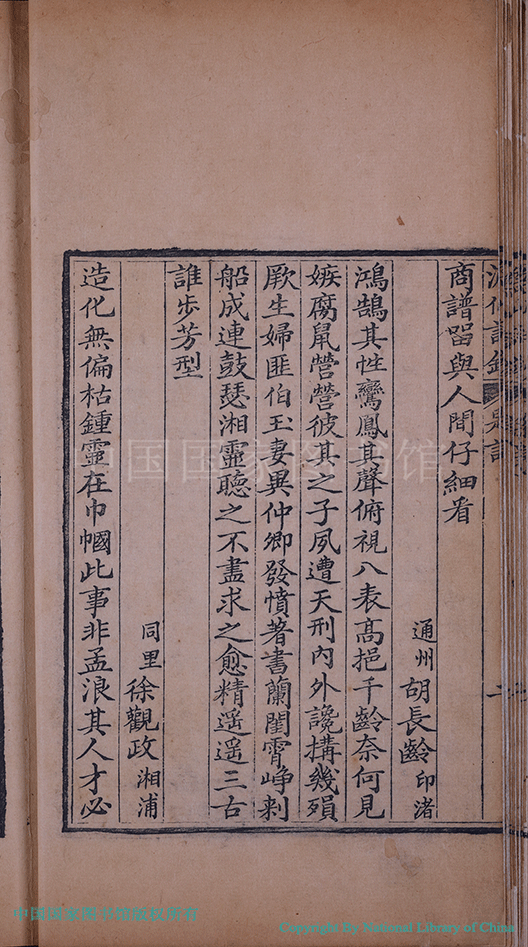 商譜留與人間仔細看
通州胡長齡印渚
鴻鵠其性鸞鳳其聲俯視八表高挹千齡奈何見
嫉腐鼠營營彼其之子夙遭天刑內外讒搆幾殞
厥生婦匪伯玉妻異仲卿發憤著書蘭閨霄崢刺
船成連鼓瑟湘靈聽之不盡求之愈精遥遥三古
誰步芳型
同里徐觀政湘浦
造化無偏枯鍾靈在巾幗此事非孟浪其人才必
中国国家图书馆
中国国家图书馆版权所有
Copyright By National Library of China